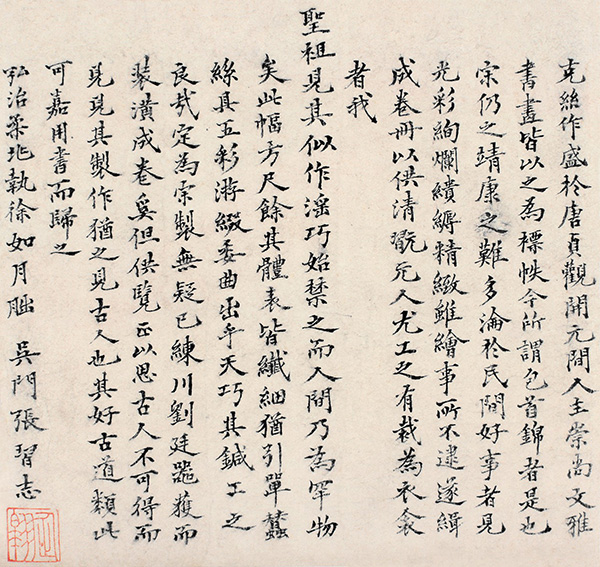 克絲作盛於唐貞觀開元間人主崇尚文雅
書畫皆以之為標帙今所謂包首錦者是也
宋仍之靖康之難多淪於民間好事者見
光彩絢爛繢縟精緻雖繪事所不逮遂緝
成卷冊以供清翫元人尤工之有裁為衣衾
者我
聖祖見其似作淫巧始禁之而人間乃為罕物
矣此幅方尺餘其體表皆纖細猶引單蠶
絲其五彩游綴委曲出乎天巧其鍼工之
良哉定為宋製無疑已練川劉廷器獲而
裝潢成卷奚但供覽正以思古人不可得而
見見其製作猶之見古人也其好古道類此
可嘉用書而歸之
弘治柔兆執徐如月朏吳門張習志